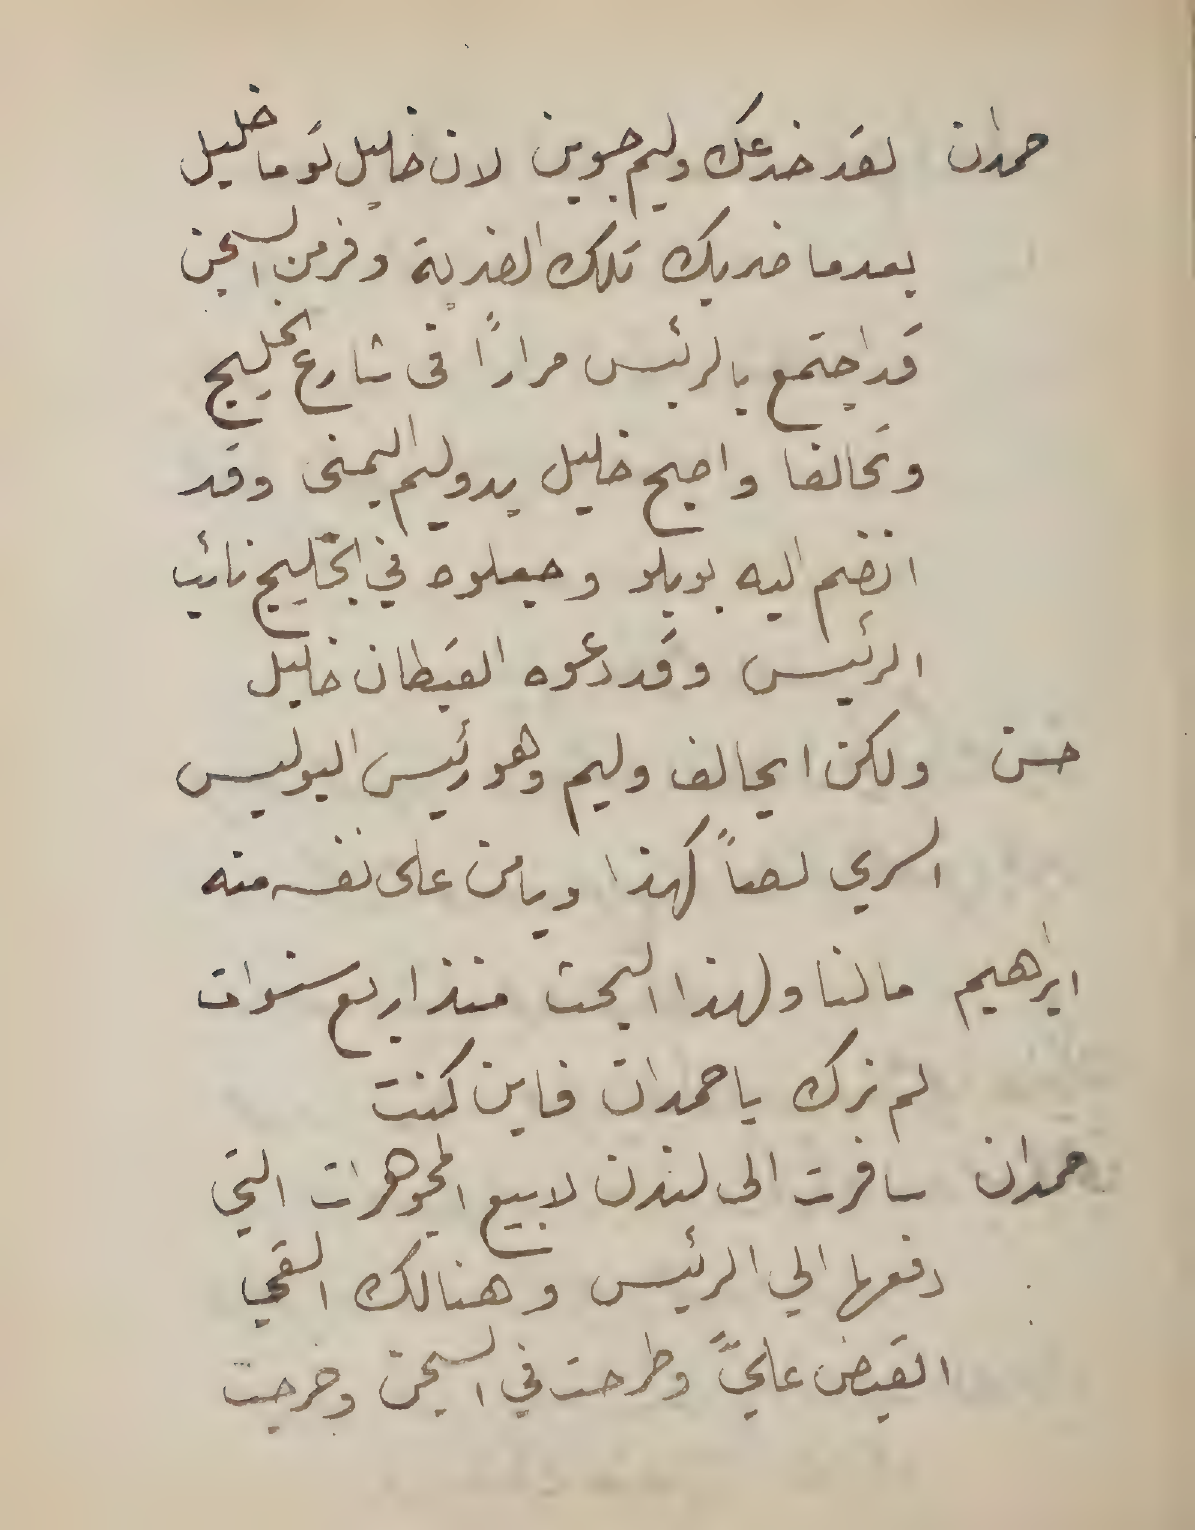 حمدان لقد خدعك وليم جوين لان خليل توما خليل
بعدما ضربك تلك الضربة وفر من السجن
قد اجتمع بالرئيس مرارًا في شارع الخليج
وتحالفا واصبح خليل يد وليم اليمنى وقد
انضم اليه بوبلو وجعلوه في الخليج نائب
الرئيس وقد دعوه القبطان خليل
حسن ولكن ايحالف وليم وهو رئيس البوليس
السري لصاً كهذا ويامن على نفسه منه
ابرهيم ما لنا ولهذا البحث منذ اربع سنوات
لم نرك يا حمدان فاين كنت
حمدان سافرت الى لندن لابيع المجوهرات التي
دفعها الي الرئيس وهنالك القي
القبض عليَّ وطرحت في السجن وخرجت